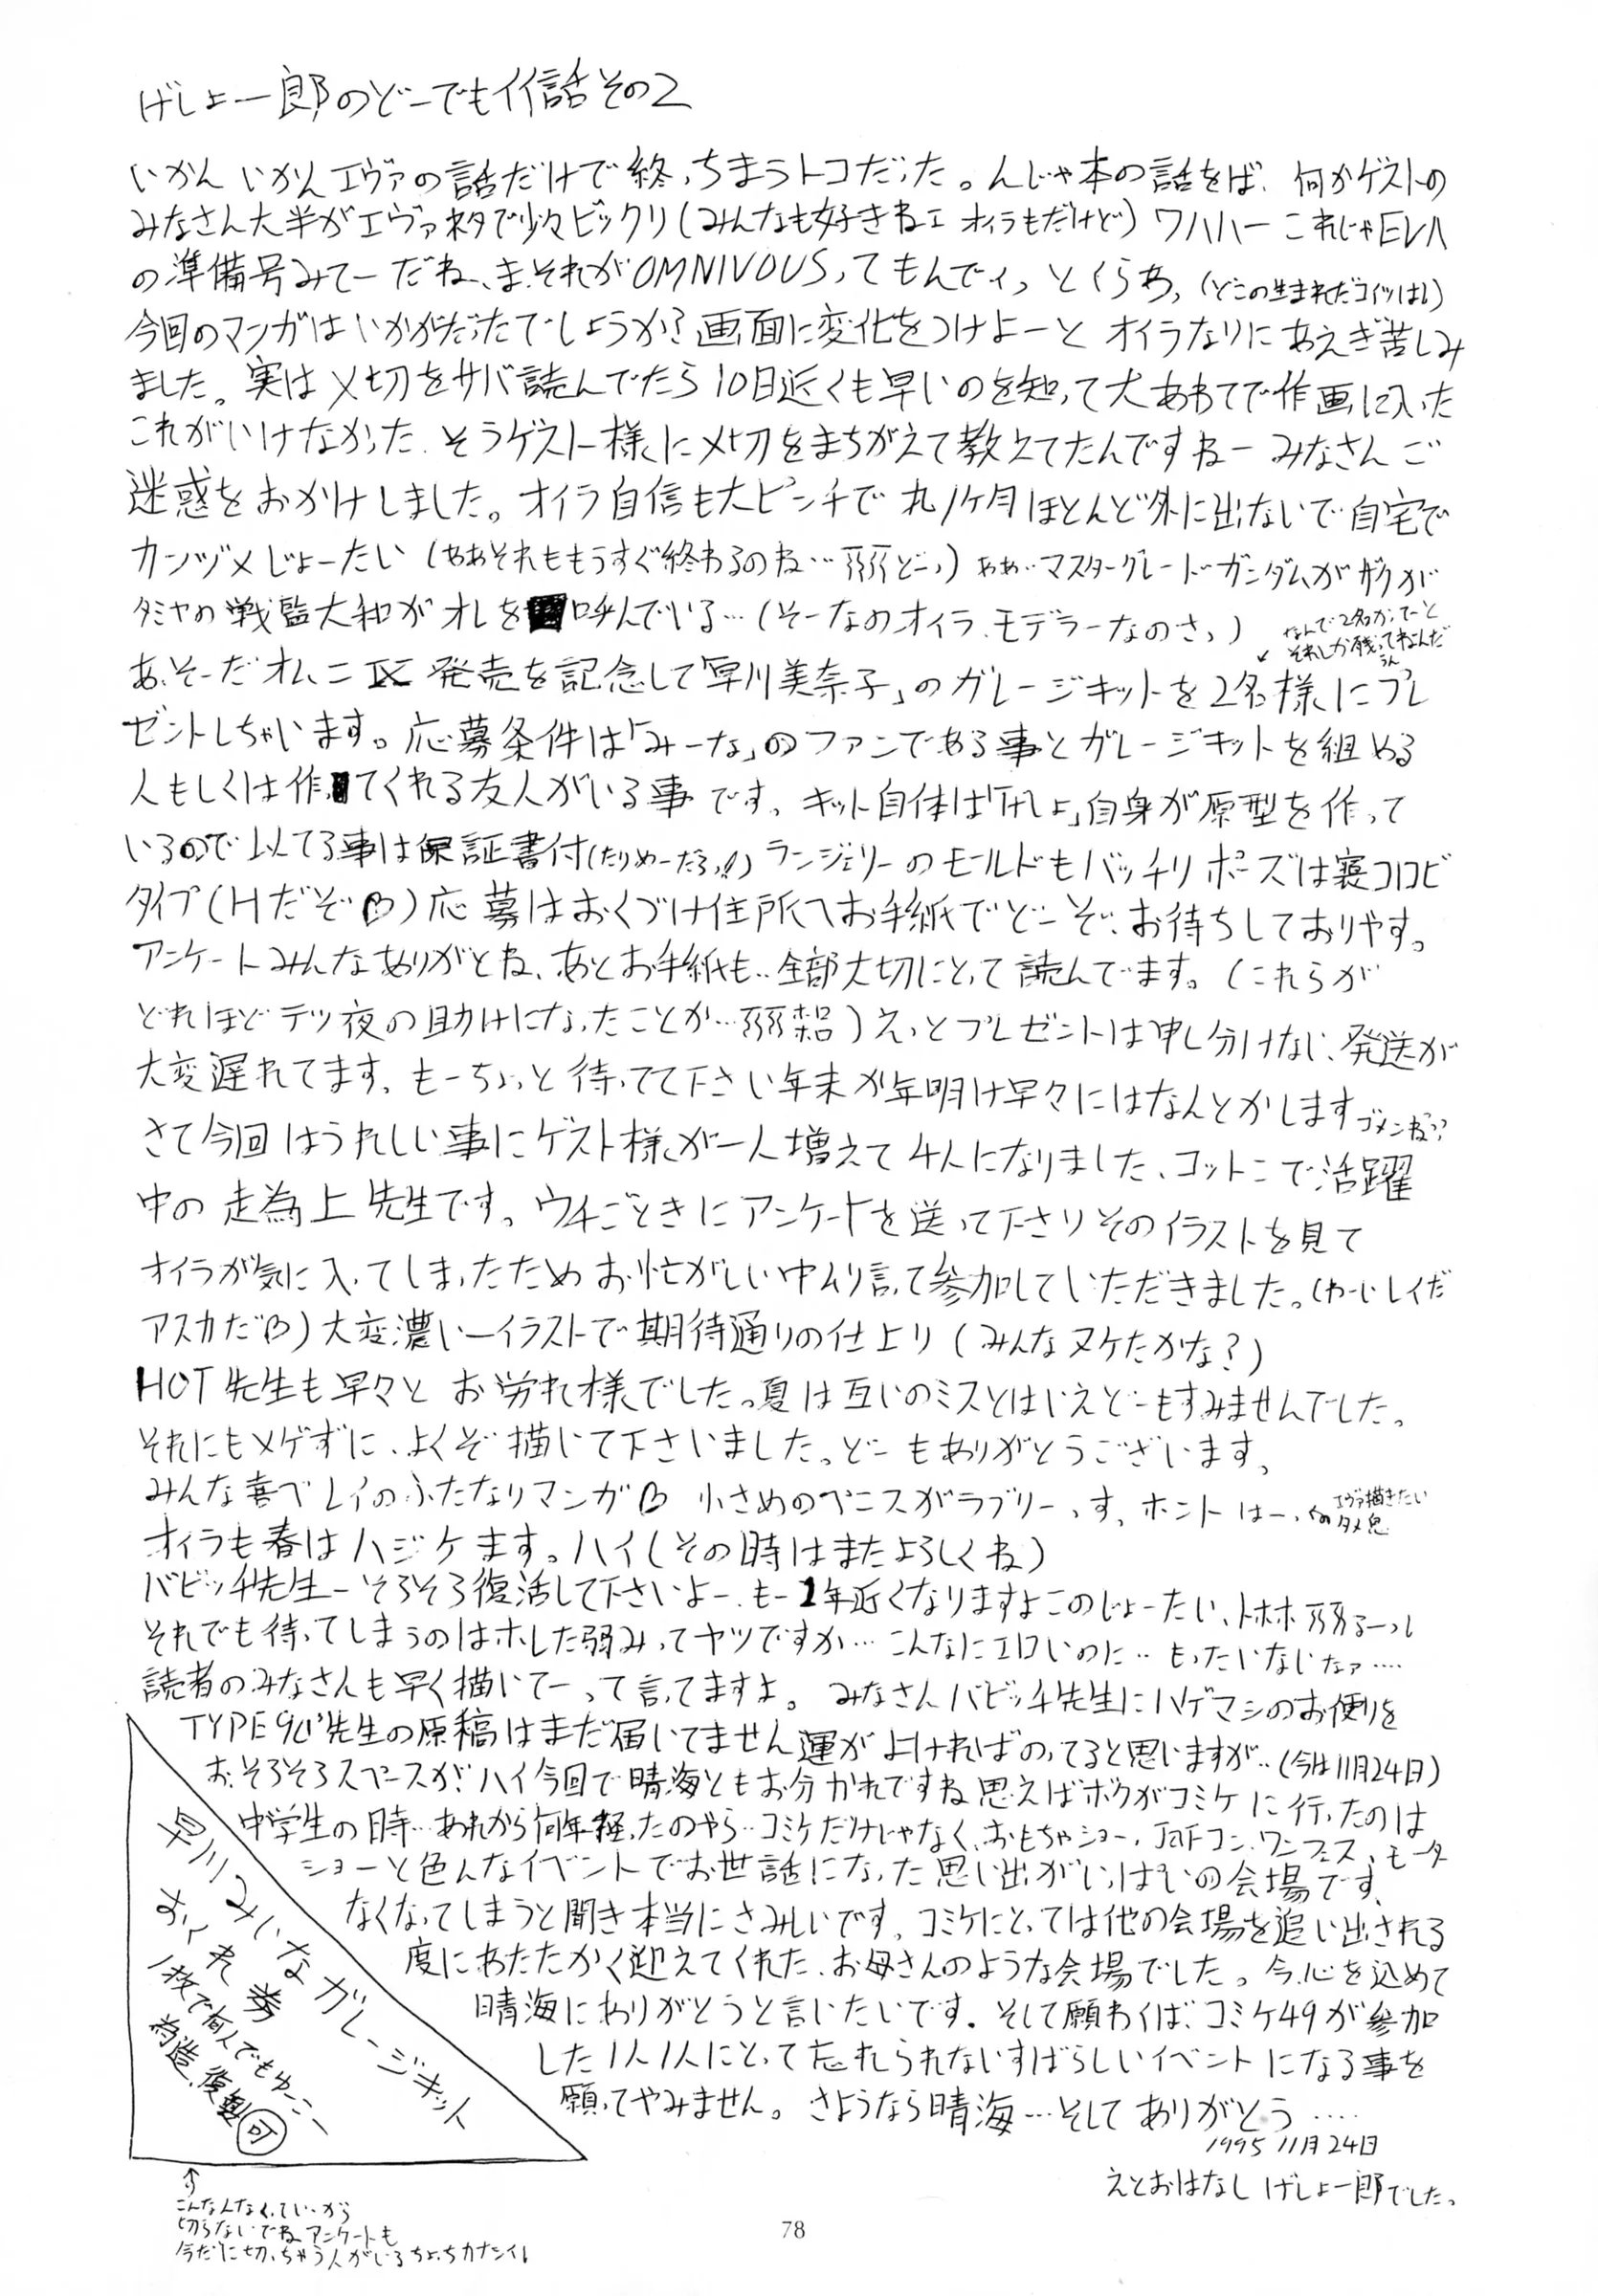 げしょ一郎のどーでもイイ話その2
いかんいかんエヴァの話だけで終っちまうトコだった。んじゃ本の話をば、何かゲストの
みなさん大半がエヴァネタで少々ビックリ(みんなも好きねェ オイラもだけど)ワハハー これじゃEVA
の準備号みてーだね、まそれがOMNIVOUSってもんでィっとくらあ,(どこの生まれだコイツは!)
今回のマンガはいかがだったでしょうか?画面に変化をつけよーと オイラなりにあえぎ苦しみ
ました。実は〆切をサバ読んでたら10日近くも早いのを知って大あわてで作画に入った
これがいけなかった.そうゲスト様に〆切をまちがえて教えてたんですねーみなさんご
迷惑をおかけしました。オイラ自信も大ピンチで丸1ヶ月ほとんど外に出ないで自宅で
カンヅメじょーたい(ああそれももうすぐ終わるのね…弱弱どーっ)ああ‥マスターグレードガンダムがザクが
タミヤの戦艦大和がオレを呼んでいる…(そーなのオイラ、モデラーなのさっ)
なんで2名かってーと
それしか残ってねんだ
うん
↙
あ、そーだオムニⅨ発売を記念して「早川美奈子」のガレージキットを2名様にプレ
ゼントしちゃいます。応募条件は「みーな」のファンである事とガレージキットを組める
人もしくは作ってくれる友人がいる事です。キット自体は「げしょ」自身が原型を作って
いるので似てる事は保証書付(たりめーだろっ!!)ランジェリーのモールドもバッチリポーズは寝コロビ
タイプ(Hだぞ♡)応募はおくづけ住所へお手紙でどーぞ、お待ちしておりやす。
アンケートみんなありがとね、あとお手紙も‥全部大切にとって読んでます。(これらが
どれほどテツ夜の助けになったことか…)えっとプレゼントは申し分けない、発送が
大変遅れてます、もーちょっと待ってて下さい年末か年明け早々にはなんとかしますゴメンね??
さて今回はうれしい事にゲスト様が一人増えて4人になりました、コットンコで活躍
中の走為上先生です。ウチごときにアンケートを送って下さりそのイラストを見て
オイラが気に入ってしまったためお忙がしい中ムリ言って参加していただきました。(わーいレイだ
アスカだ♡)大変濃いーイラストで期待通りの仕上り(みんなヌケたかな?)
HOT先生も早々とお労れ様でした。夏は互いのミスとはいえどーもすみませんでした。
それにもメゲずに、よくぞ描いて下さいました。どーもありがとうございます。
みんな喜べレイのふたなりマンガ♡ 小さめのペニスがラブリーっす、ホントはー、
エヴァ描きたい
オイラも春はハジケます。ハイ(その時はまたよろしくね)
バビッチ先生ーそろそろ復活して下さいよー、もー1年近くなりますよこのじょーたい、トホホ
それでも待ってしまうのはホレた弱みってヤツですか…こんなにエロいのに‥もったいないなァ‥‥
読者のみなさんも早く描いてーって言ってますよ。 みなさんバビッチ先生にハゲマシのお便りを
TYPE90'先生の原稿はまだ届いてません運がよければのってると思いますが‥(今は11月24日)
おっそろそろスペースが!ハイ今回で晴海ともお分かれですね思えばボクがコミケに行ったのは
中学生の時‥あれから何年経ったのやら‥コミケだけじゃなく、おもちゃショー,JAFコン、ワンフェス、モータ
ショーと色んなイベントでお世話になった思い出がいっぱいの会場です、
なくなってしまうと聞き本当にさみしいです。コミケにとっては他の会場を追い出される
度にあたたかく迎えてくれた、お母さんのような会場でした。今、心を込めて
晴海にありがとうと言いたいです。そして願わくば、コミケ49が参加
した1人1人にとって忘れられないすばらしいイベントになる事を
願ってやみません。さようなら晴海…そしてありがとう‥‥
1995 11月24日
えとおはなし げしょ一郎でした。
早川みいなガレージキット
おくれ券
1枚で何人でもゆーこー
偽造、複製可
↑
こんなんなくっていーから
切らないでね アンケートも
今だに切っちゃう人がいるちょっちカナシイ!
78